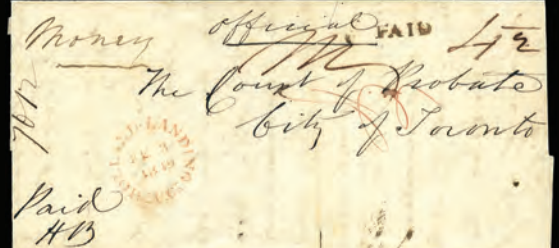 Money official PAID
The Court of Probate
City of Toronto
LANDING
Paid
HB